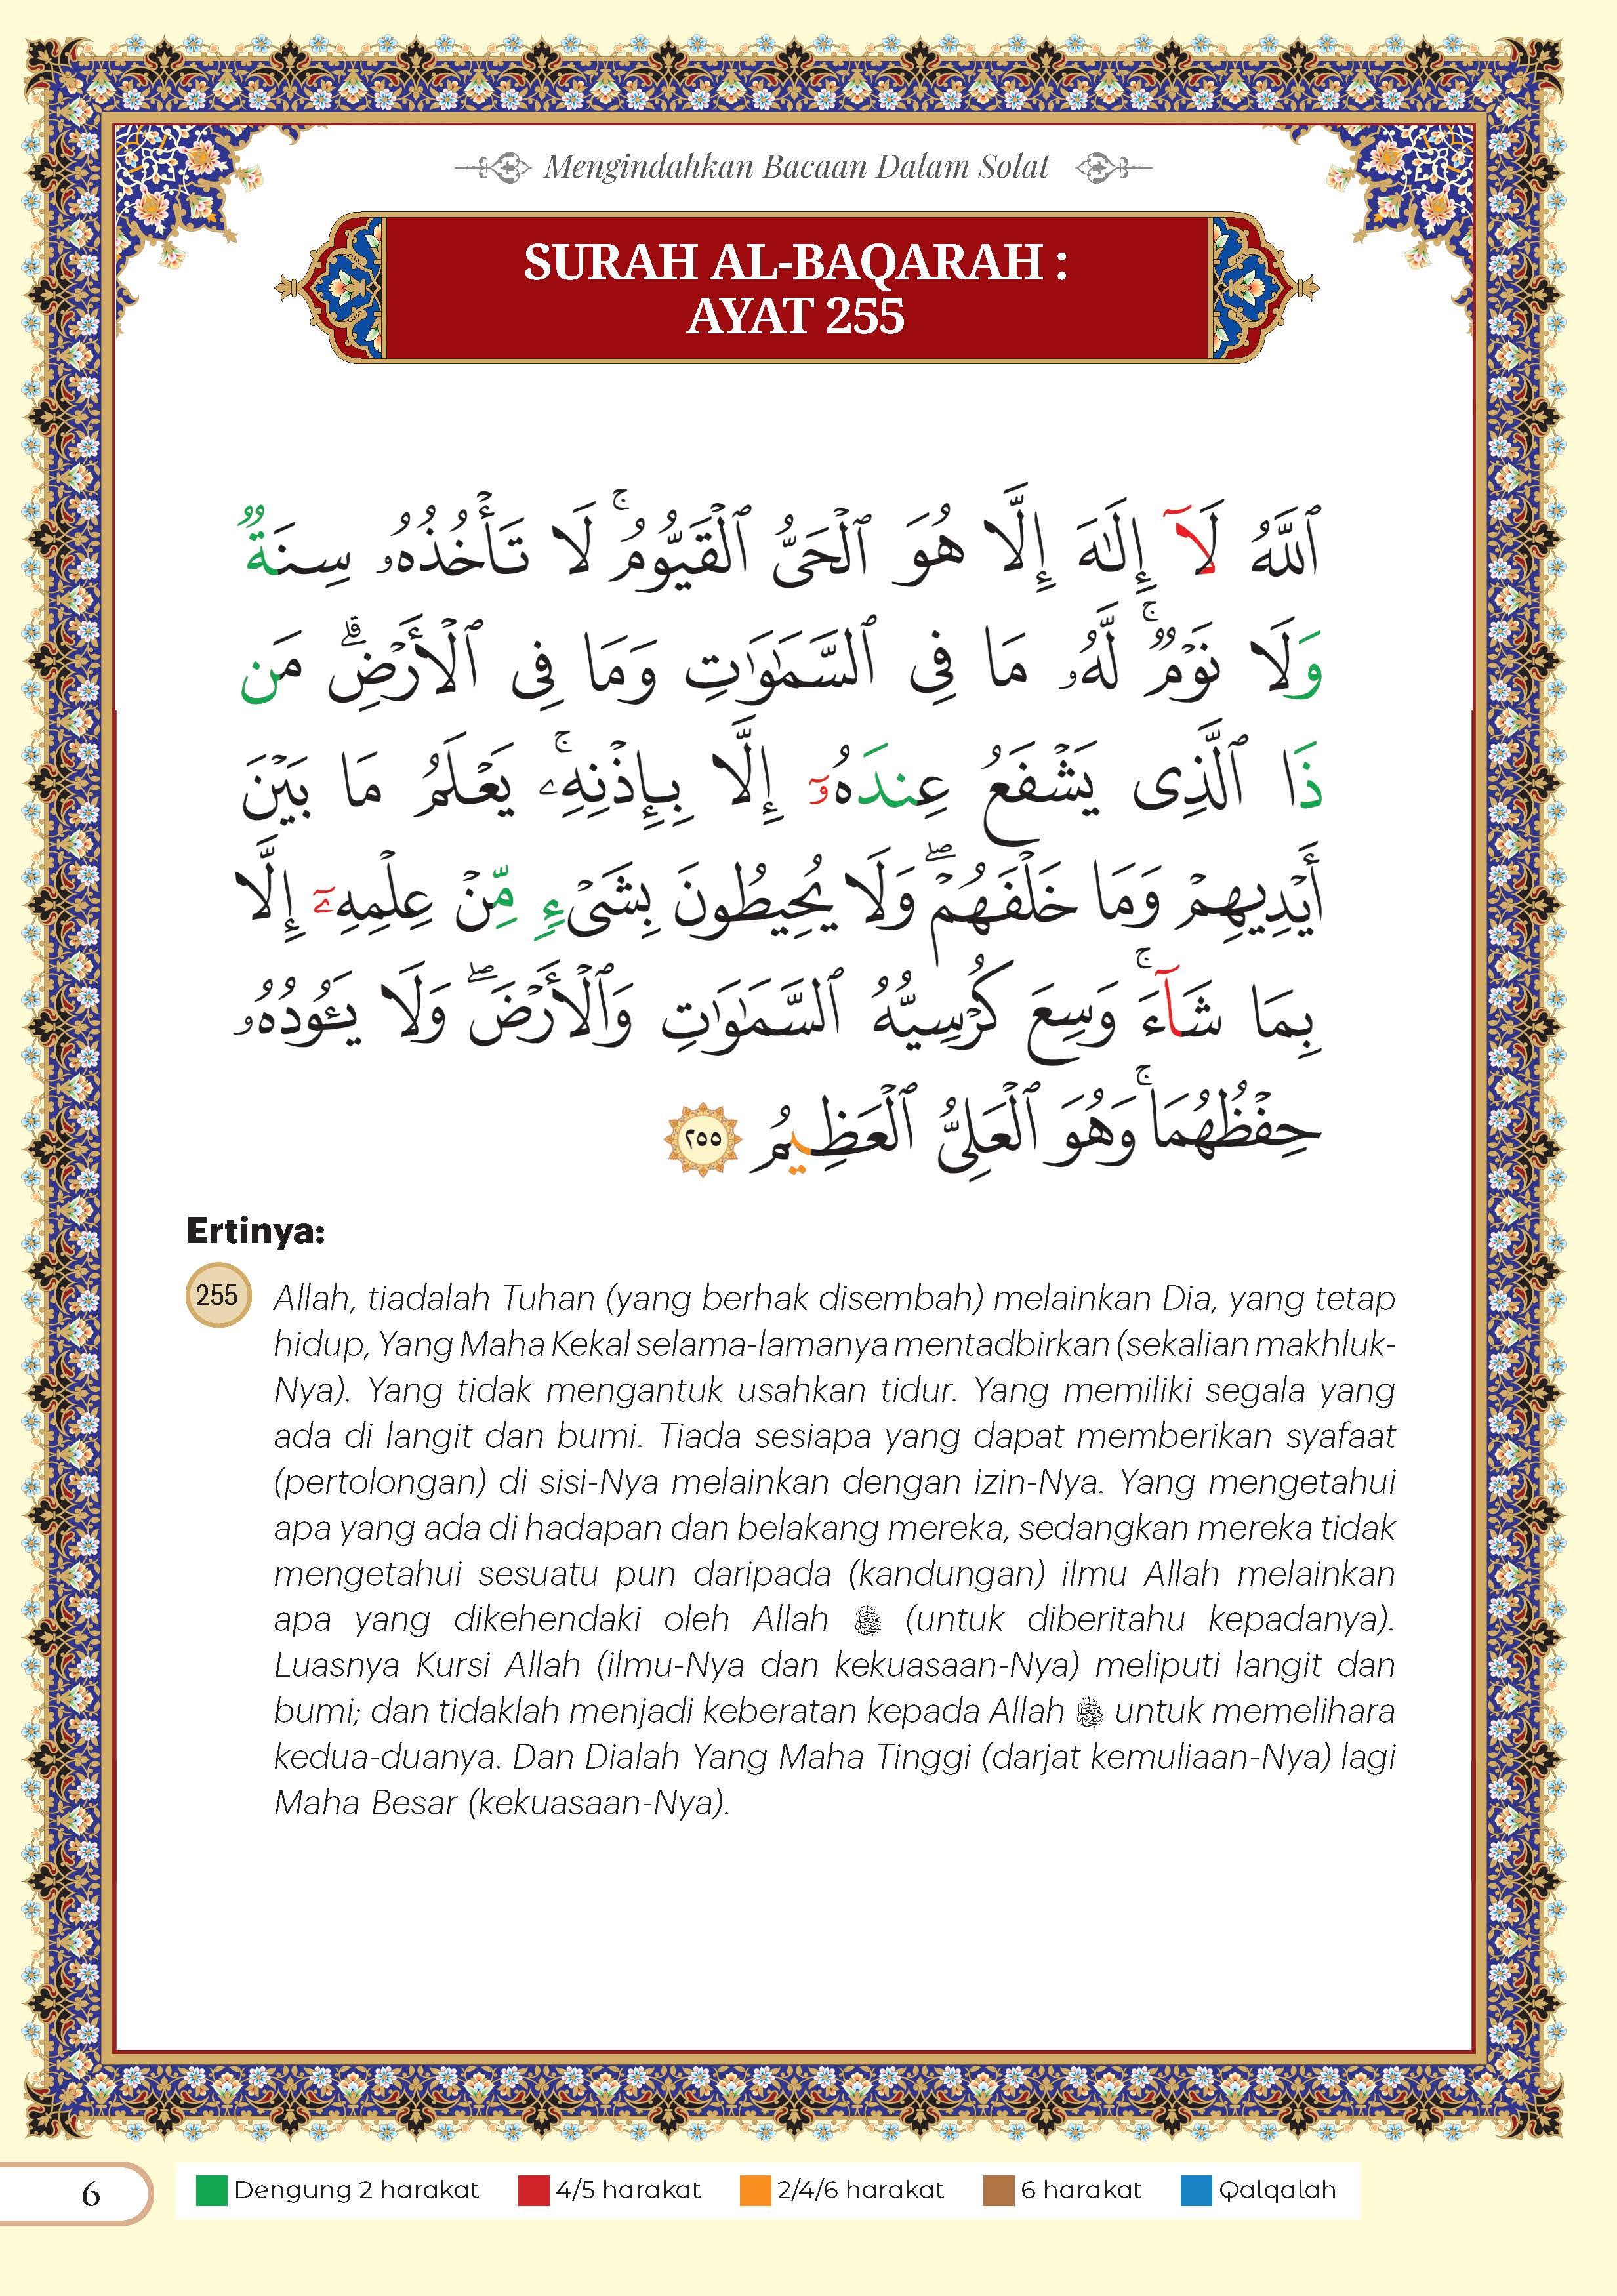 Mengindahkan Bacaan Dalam Solat
SURAH AL-BAQARAH :
AYAT 255
ٱللَّهُ لَآ إِلَٰهَ إِلَّا هُوَ ٱلْحَىُّ ٱلْقَيُّومُ ۚ لَا تَأْخُذُهُۥ سِنَةٌ
وَلَا نَوْمٌ ۚ لَّهُۥ مَا فِى ٱلسَّمَٰوَٰتِ وَمَا فِى ٱلْأَرْضِ ۗ مَن
ذَا ٱلَّذِى يَشْفَعُ عِندَهُۥٓ إِلَّا بِإِذْنِهِۦ ۚ يَعْلَمُ مَا بَيْنَ
أَيْدِيهِمْ وَمَا خَلْفَهُمْ ۖ وَلَا يُحِيطُونَ بِشَىْءٍ مِّنْ عِلْمِهِۦٓ إِلَّا
بِمَا شَآءَ ۚ وَسِعَ كُرْسِيُّهُ ٱلسَّمَٰوَٰتِ وَٱلْأَرْضَ ۖ وَلَا يَـُٔودُهُۥ
حِفْظُهُمَا ۚ وَهُوَ ٱلْعَلِىُّ ٱلْعَظِيمُ ٢٥٥
Ertinya:
255 Allah, tiadalah Tuhan (yang berhak disembah) melainkan Dia, yang tetap
hidup, Yang Maha Kekal selama-lamanya mentadbirkan (sekalian makhluk-
Nya). Yang tidak mengantuk usahkan tidur. Yang memiliki segala yang
ada di langit dan bumi. Tiada sesiapa yang dapat memberikan syafaat
(pertolongan) di sisi-Nya melainkan dengan izin-Nya. Yang mengetahui
apa yang ada di hadapan dan belakang mereka, sedangkan mereka tidak
mengetahui sesuatu pun daripada (kandungan) ilmu Allah melainkan
apa yang dikehendaki oleh Allah (untuk diberitahu kepadanya).
Luasnya Kursi Allah (ilmu-Nya dan kekuasaan-Nya) meliputi langit dan
bumi; dan tidaklah menjadi keberatan kepada Allah untuk memelihara
kedua-duanya. Dan Dialah Yang Maha Tinggi (darjat kemuliaan-Nya) lagi
Maha Besar (kekuasaan-Nya).
6 Dengung 2 harakat 4/5 harakat 2/4/6 harakat 6 harakat Qalqalah